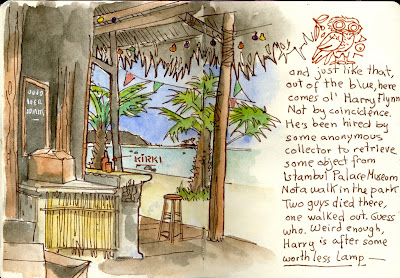 KIRKI
and just like that,
out of the blue, here
comes ol' Harry Flynn
Not by coincidence.
He's been hired by
some anonymous
collector to retrieve
some object from
Istanbul Palace Museum
Not a walk in the park
Two guys died there,
one walked out. Guess
who. Weird enough,
Harry is after some
worthless Lamp